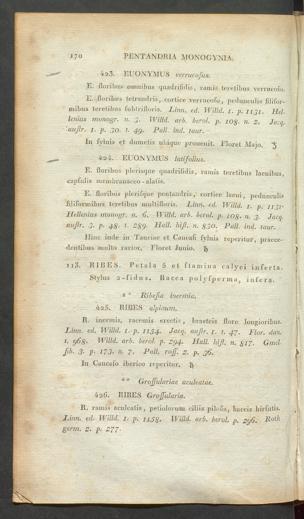 170 PENTANDRIA MONOGYNIA.
423. EUONYMUS verrucosus.
E. floribus omnibus quadrifidis, ramis teretibus verrucosis.
E. floribus tetrandris, cortice verrucoso, pedunculis filifor-
mibus teretibus subtrifloris. Linn. ed. Willd. 1. p. 1131. Hel-
lenius monogr. n. 3. Willd. arb. berol. p. 108. n. 2. Jacq.
austr. 1. p. 30. t. 49. Pall. ind. taur.
In sylvis et dumetis ubique provenit. Floret Majo. ♄
424. EUONYMUS latifolius.
E. floribus plerisque quadrifidis, ramis teretibus laevibus,
capsulis membranaceo-alatis.
E. floribus plerisque pentandris, cortice laevi, pedunculis
filiformibus teretibus multifloris. Linn. ed. Willd. 1. p. 1131.
Hellenius monogr. n. 6. Willd. arb. berol. p. 108. n. 3. Jacq.
austr. 3. p. 48. t. 289. Hall. hist. n. 830. Pall. ind. taur.
Hinc inde in Tauriae et Caucasi sylvis reperitur, praece-
dentibus multo rarior. Floret Junio. ♄
113. RIBES. Petala 5 et stamina calyci inserta.
Stylus 2-fidus. Bacca polysperma, infera.
* Ribesia inermia.
425. RIBES alpinum.
R. inermis, racemis erectis, bracteis flore longioribus.
Linn. ed. Willd. 1. p. 1154. Jacq. austr. 1. t. 47. Flor. dan.
t. 968. Willd. arb. berol. p. 294. Hall. hist. n. 817. Gmel.
sib. 3. p. 173. n. 7. Pall. ross. 2. p. 36.
In Caucaso iberico reperitur. ♄
** Grossulariae aculeatae.
426. RIBES Grossularia.
R. ramis aculeatis, petiolorum ciliis pilosis, baccis hirsutis.
Linn. ed. Willd. 1. p. 1158. Willd. arb. berol. p. 296. Roth
germ. 2. p. 277.